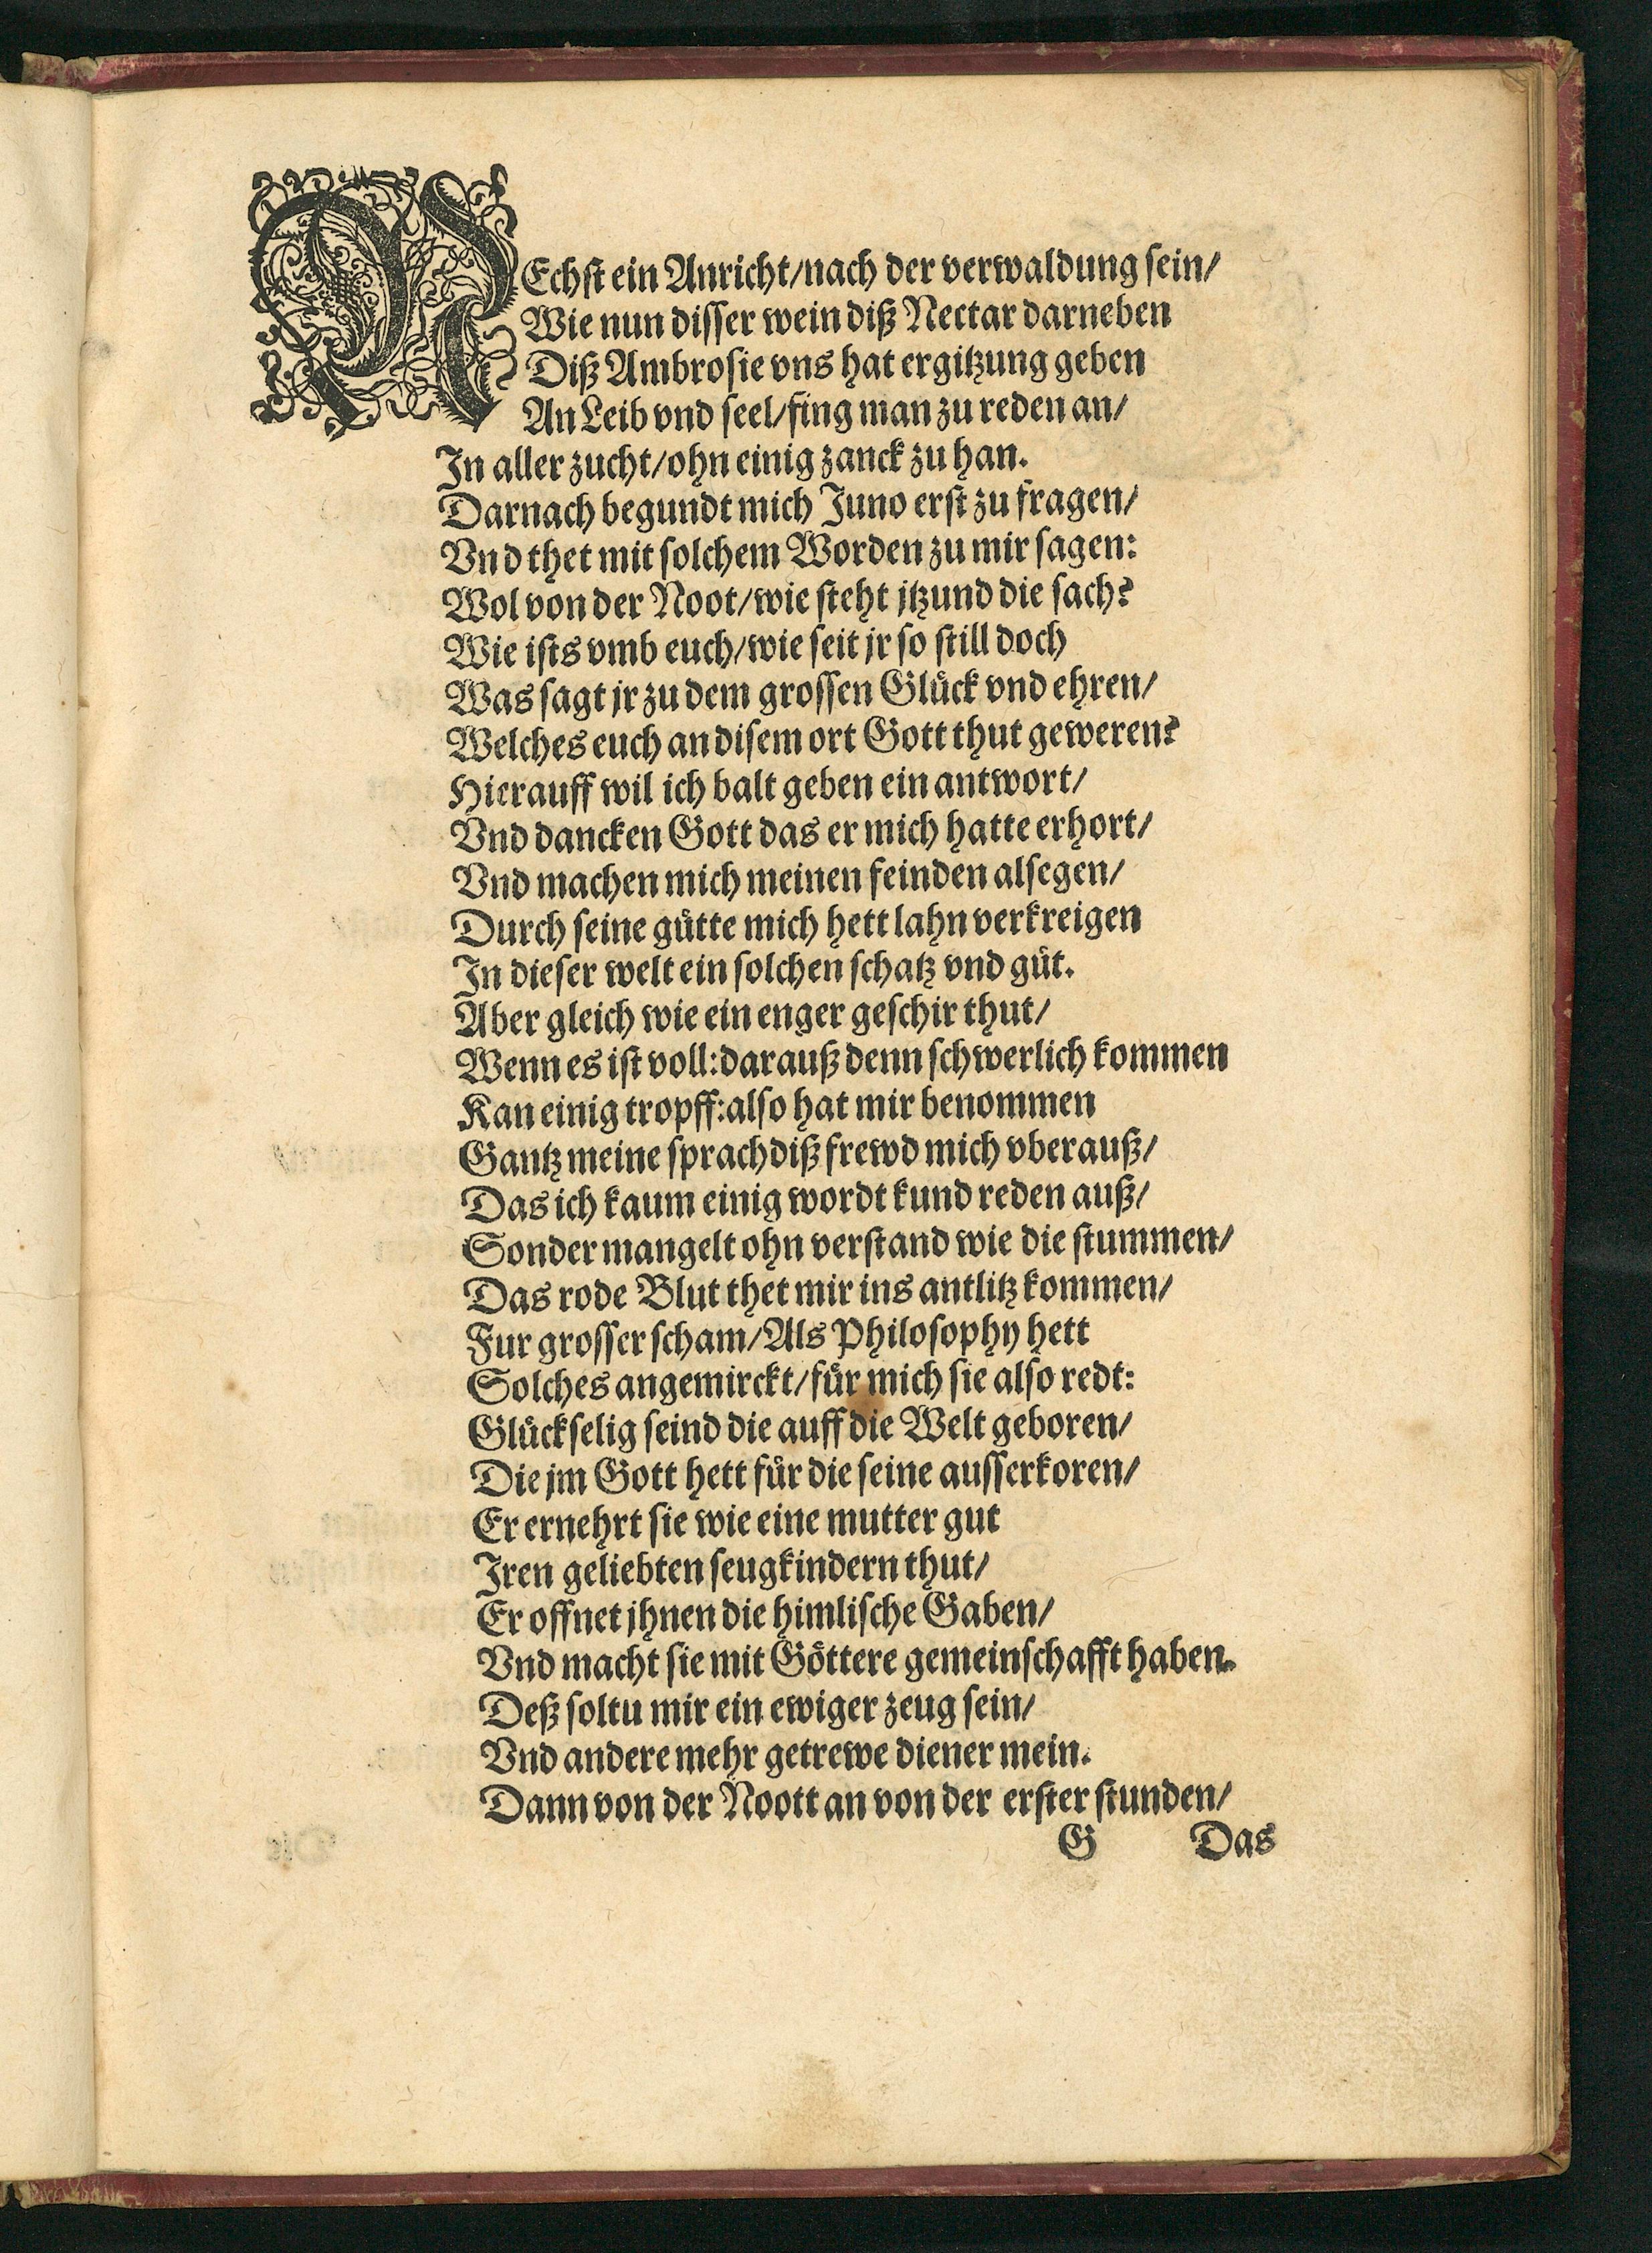 NEchst ein Anricht/nach der verwaldung sein/
Wie nun disser wein diß Nectar darneben
Diß Ambrosie vns hat ergitzung geben
An Leib vnd seel/fing man zu reden an/
In aller zucht/ohn einig zanck zu han.
Darnach begundt mich Juno erst zu fragen/
Vnd thet mit solchem Worden zu mir sagen:
Wol von der Noot/wie steht jtzund die sach?
Wie ists vmb euch/wie seit jr so still doch
Was sagt jr zu dem grossen Glůck vnd ehren/
Welches euch an disem ort Gott thut geweren?
Hierauff wil ich balt geben ein antwort/
Vnd dancken Gott das er mich hatte erhort/
Vnd machen mich meinen feinden alsegen/
Durch seine gůtte mich hett lahn verkreigen
In dieser welt ein solchen schatz vnd gůt.
Aber gleich wie ein enger geschir thut/
Wenn es ist voll:darauß denn schwerlich kommen
Kan einig tropff:also hat mir benommen
Gantz meine sprach diß frewd mich vberauß/
Das ich kaum einig wordt kund reden auß/
Sonder mangelt ohn verstand wie die stummen/
Das rode Blut thet mir ins antlitz kommen/
Fur grosser scham/Als Philosophy hett
Solches angemirckt/fůr mich sie also redt:
Glůckselig seind die auff die Welt geboren/
Die jm Gott hett fůr die seine ausserkoren/
Er ernehrt sie wie eine mutter gut
Iren geliebten seugkindern thut/
Er offnet jhnen die himlische Gaben/
Vnd macht sie mit Göttere gemeinschafft haben.
Deß soltu mir ein ewiger zeug sein/
Vnd andere mehr getrewe diener mein.
Dann von der Noott an von der erster stunden/
G Das